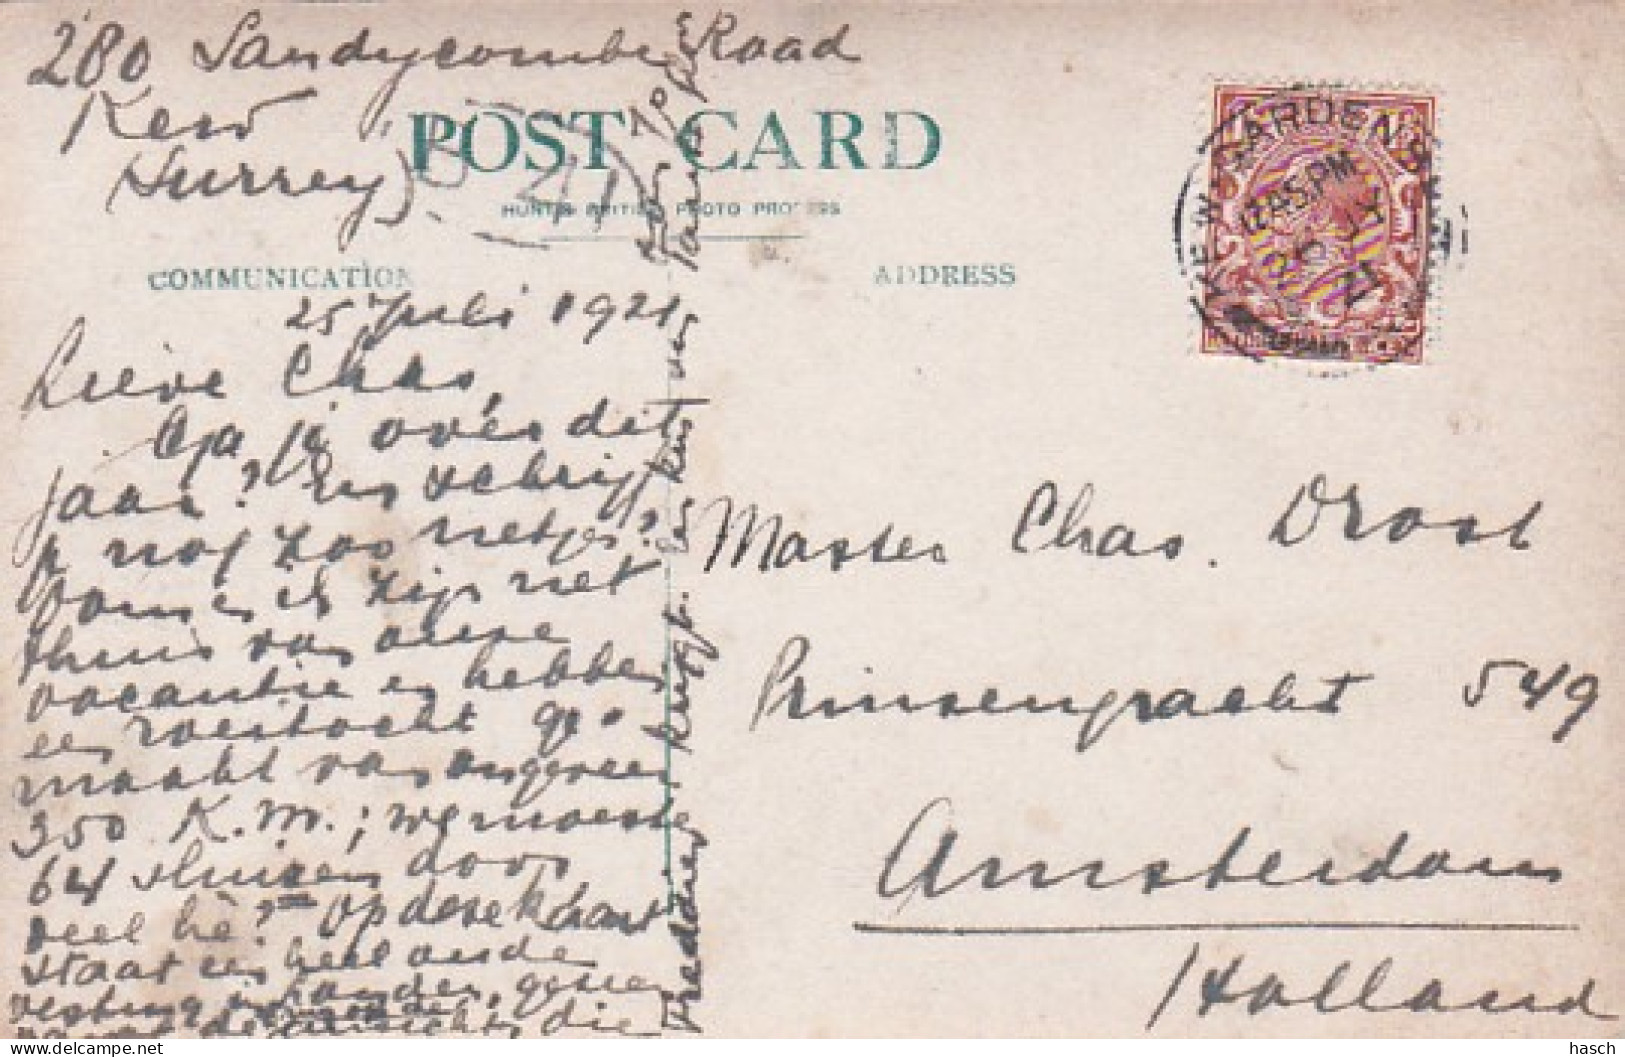 280 Sandycombe Road
Kew
Surrey
POST CARD
HUNTER BRITISH PHOTO PROCESS
COMMUNICATION
ADDRESS
KEW GARDENS
12.45 PM
25 JY
21
25 Juli 1921
Lieve Chas,
Ga je over dit
jaar? En schrijf
je nog zoo netjes?
Oom en ik zijn net
thuis van onze
vacantie en hebben
een roeitocht ge-
maakt van ongeveer
350 K.M.; wij moesten
64 sluizen door
veel hè? Op deze kaart
staat een heel oude
vesting in
die
Freddie
krijgt.
van
Tante
Master Chas. Drost
Prinsengracht 549
Amsterdam
Holland
hasch